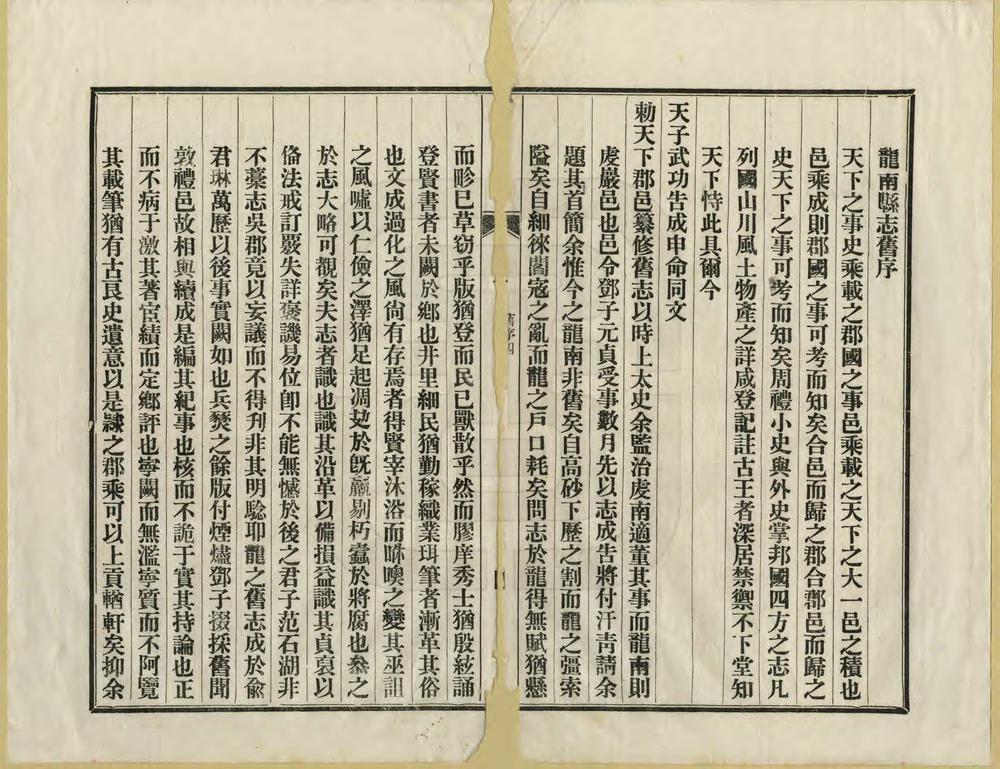 龍南縣志舊序
天下之事史乘載之郡國之事邑乘載之天下之大一邑之積也
邑乘成則郡國之事可考而知矣合邑而歸之郡合郡邑而歸之
史天下之事可考而知矣周禮小史與外史掌邦國四方之志凡
列國山川風土物產之詳咸登記註古王者深居禁禦不下堂知
天下恃此具爾今
天子武功告成申命同文
勅天下郡邑纂修舊志以時上太史余監治虔南適董其事而龍南則
虔巖邑也邑令鄧子元貞受事數月先以志成告將付汗靑請余
題其首簡余惟今之龍南非舊矣自高砂下歷之割而龍之彊索
隘矣自細徠閻寇之亂而龍之戶口耗矣問志於龍得無賦猶懸
舊序四
而畛巳草窃乎版猶登而民已獸散乎然而膠庠秀士猶殷絃誦
登賢書者未闕於鄉也井里細民猶勤稼織業珥筆者漸革其俗
也文成過化之風尙有存焉者得賢宰沐浴而咻噢之變其巫詛
之風噓以仁儉之澤猶足起凋攰於旣羸剔朽蠹於將腐也叅之
於志大略可觀矣夫志者識也識其沿革以備損益識其貞裒以
俻法戒訂覈失詳褒譏易位卽不能無憾於後之君子范石湖非
不藁志吳郡竟以妄議而不得刋非其明騐耶龍之舊志成於兪
君琳萬歷以後事實闕如也兵燹之餘版付煙燼鄧子掇採舊聞
敦禮邑故相與續成是編其紀事也核而不詭于實其持論也正
而不病于激其著宦績而定鄉評也寧闕而無濫寧質而不阿覽
其載筆猶有古良史遺意以是隷之郡乘可以上貢輶軒矣抑余